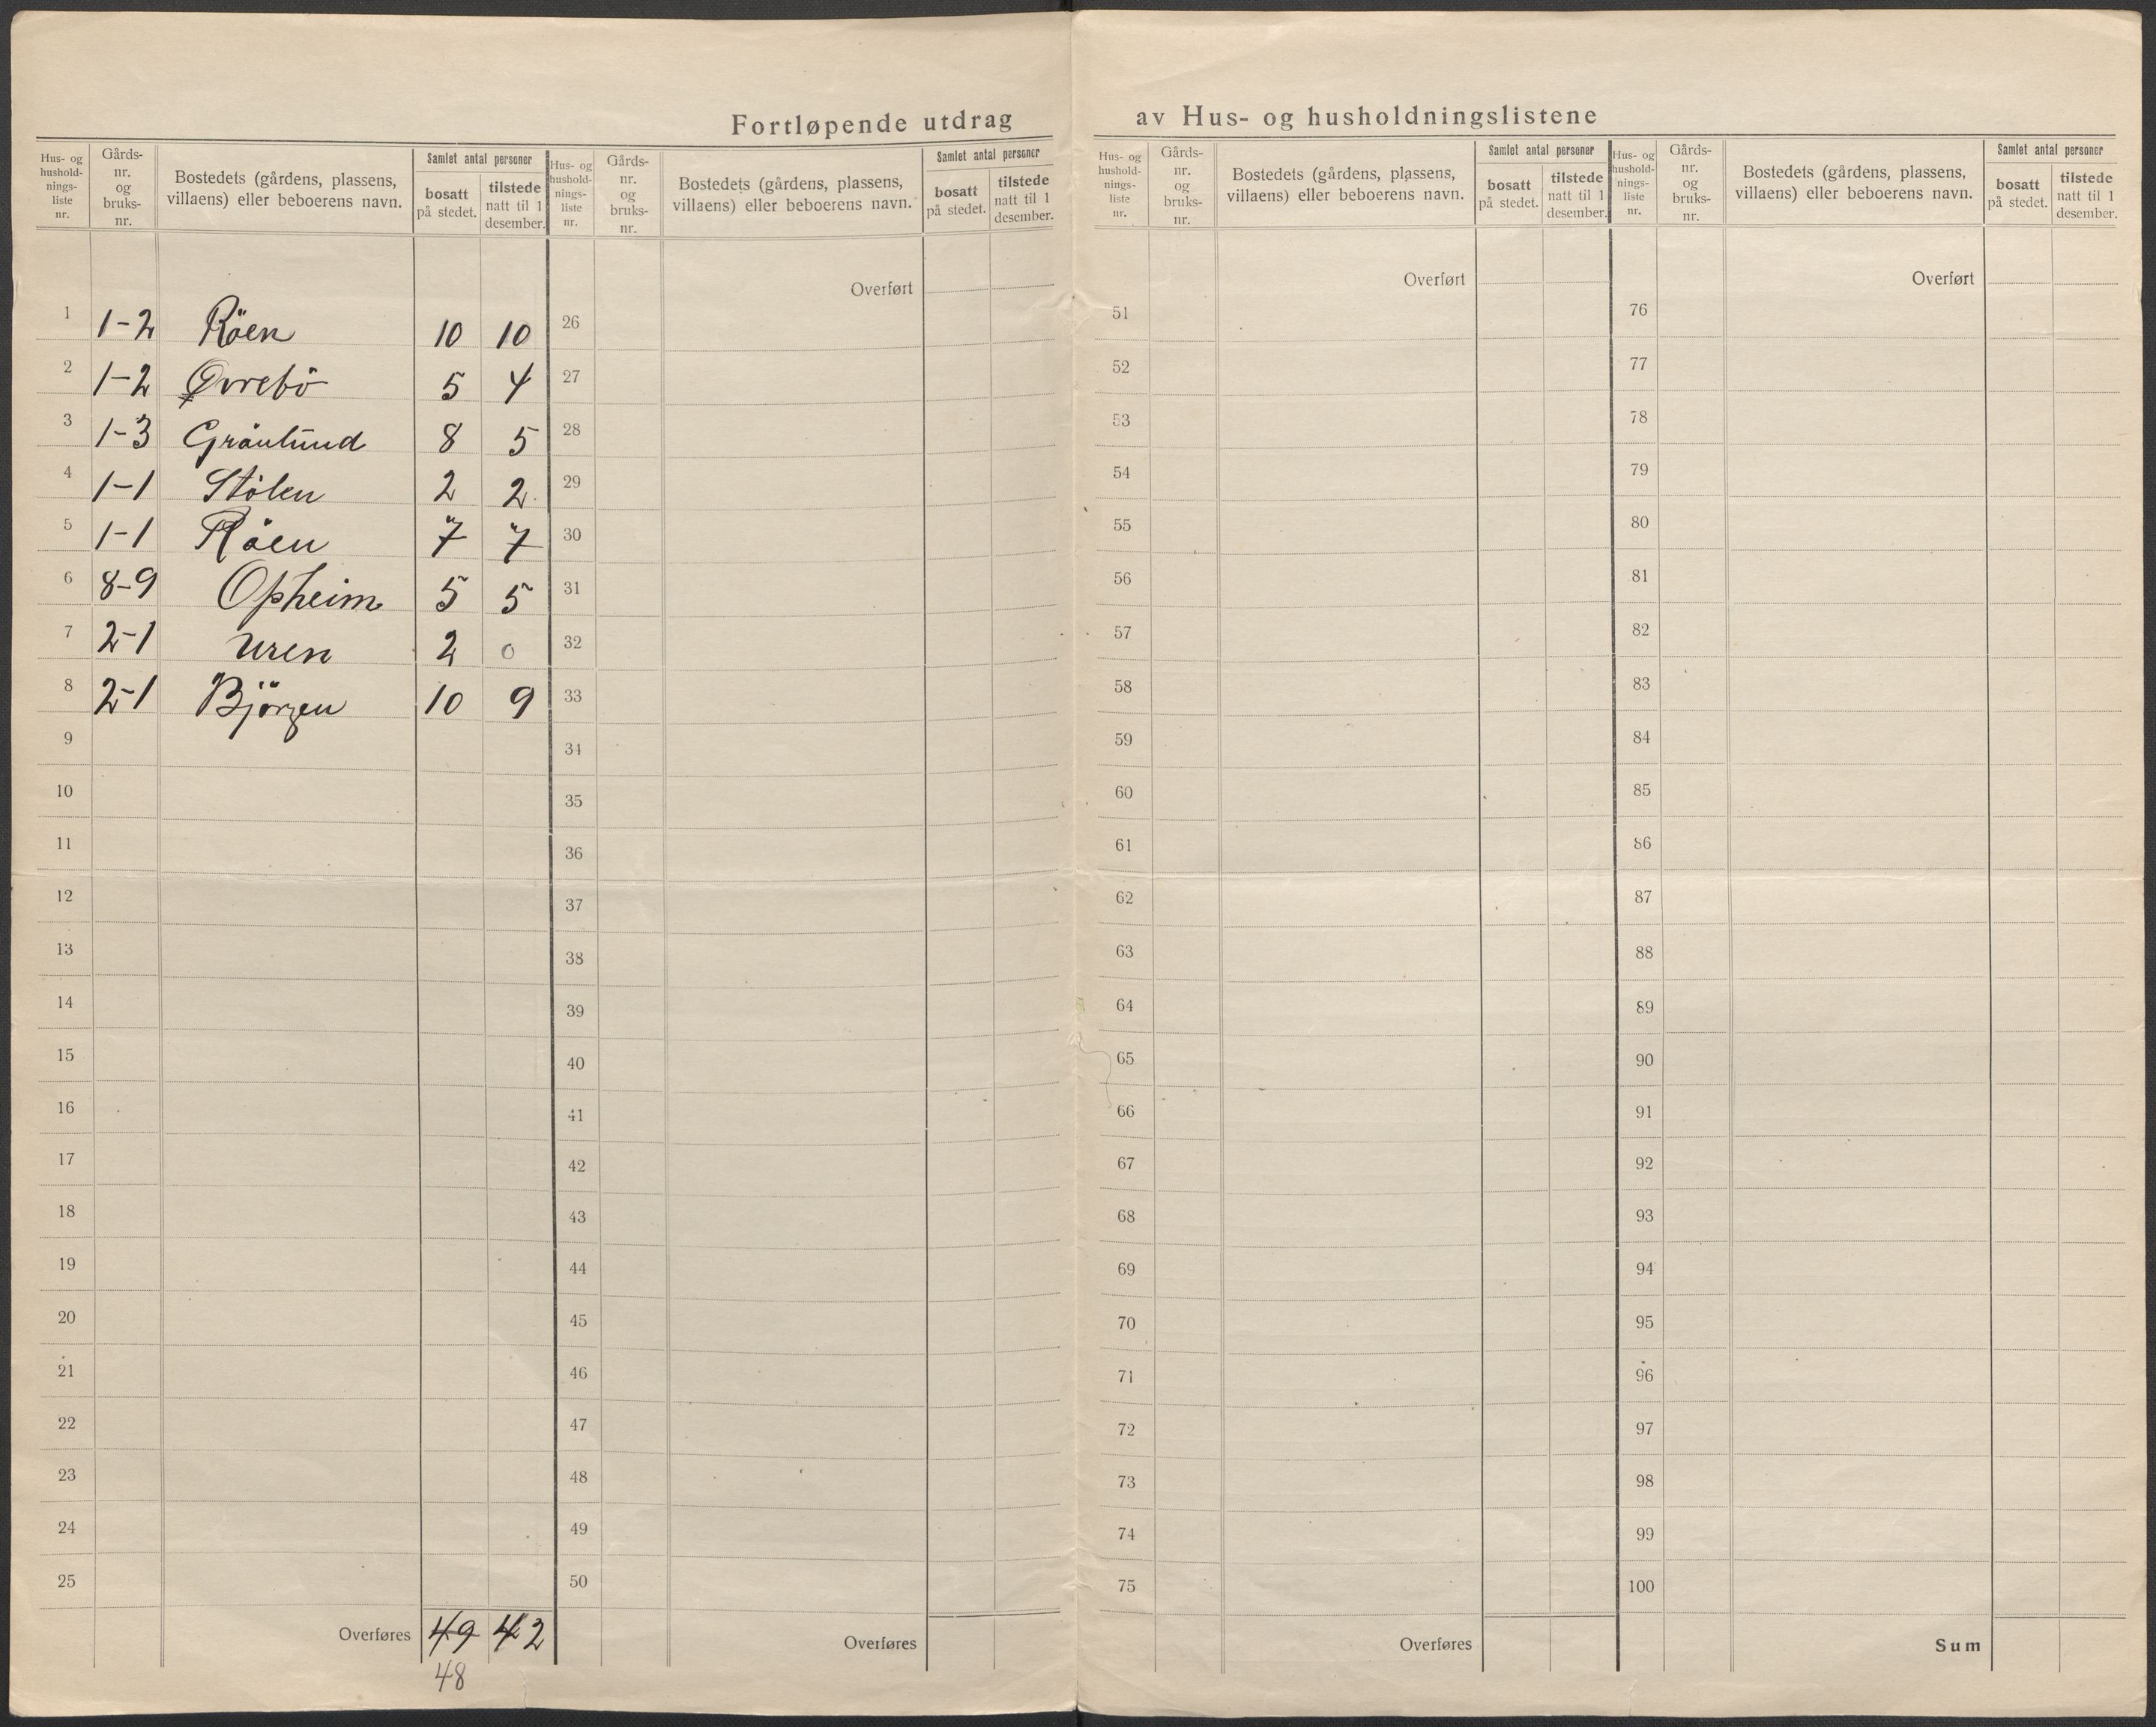 Fortløpende utdrag av Hus- og husholdningslistene
Hus- og hushold- nings- liste nr. | Gårds- nr. og bruks- nr. | Bostedets (gårdens, plassens, villaens) eller beboerens navn. | Samlet antal personer | bosatt på stedet. | tilstede natt til 1 desember.
Hus- og hushold- nings- liste nr. | Gårds- nr. og bruks- nr. | Bostedets (gårdens, plassens, villaens) eller beboerens navn. | Samlet antal personer | bosatt på stedet. | tilstede natt til 1 desember.
Hus- og hushold- nings- liste nr. | Gårds- nr. og bruks- nr. | Bostedets (gårdens, plassens, villaens) eller beboerens navn. | Samlet antal personer | bosatt på stedet. | tilstede natt til 1 desember.
Hus- og hushold- nings- liste nr. | Gårds- nr. og bruks- nr. | Bostedets (gårdens, plassens, villaens) eller beboerens navn. | Samlet antal personer | bosatt på stedet. | tilstede natt til 1 desember.
Overført Overført Overført
1 1-2 Röen 10 10 26 51 76
2 1-2 Øvrebö 5 4 27 52 77
3 1-3 Grönlund 8 5 28 53 78
4 1-1 Stölen 2 2 29 54 79
5 1-1 Röen 7 7 30 55 80
6 8-9 Opheim 5 5 31 56 81
7 2-1 Uren 2 0 32 57 82
8 2-1 Björgen 10 9 33 58 83
9 34 59 84
10 35 60 85
11 36 61 86
12 37 62 87
13 38 63 88
14 39 64 89
15 40 65 90
16 41 66 91
17 42 67 92
18 43 68 93
19 44 69 94
20 45 70 95
21 46 71 96
22 47 72 97
23 48 73 98
24 49 74 99
25 50 75 100
Overføres 49 42 Overføres Overføres Sum
48